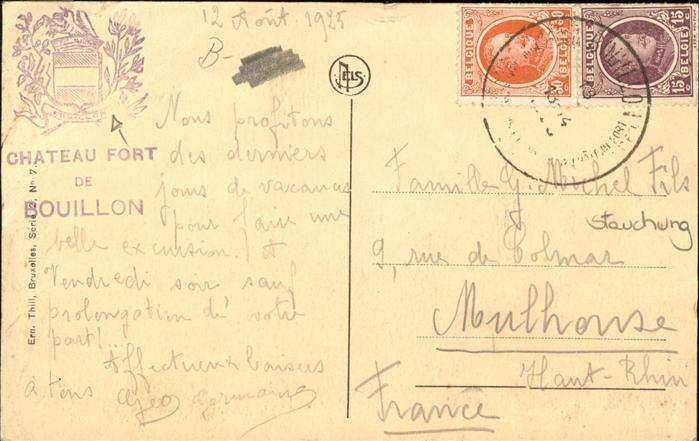 12 Août 1925
B-
NELS
CHATEAU FORT
DE
BOUILLON
Ern. Thill, Bruxelles, Série 2, No 7
Nous profitons
des derniers
jours de vacances
pour faire une
belle excursion. A
Vendredi soir sauf
prolongation de votre
part!...
Affectueux baisers
à tous
Germaine
BELGIQUE BELGIE
BELGIQUE BELGIE
15 15
Famille G. Michel Fils
Stauchung
9, rue de Colmar
Mulhouse
Haut-Rhin
France